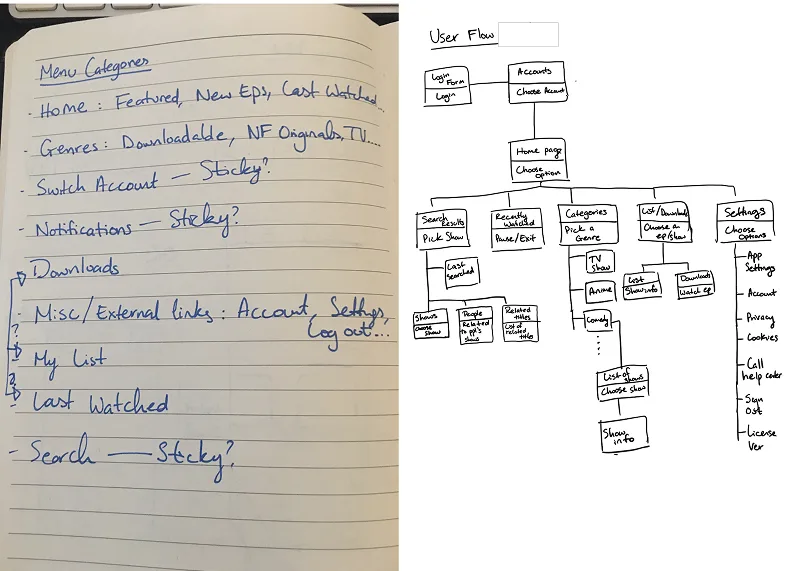 Menu Categories
- Home : Featured, New Eps, Last Watched...
- Genres : Downloadable, NF Originals, TV....
- Switch Account — Sticky?
- Notifications — Sticky?
- Downloads
- Misc/External links : Account, Settings,
Log out...
?
- My List
?
- Last Watched
- Search — Sticky?
User Flow
Login Form
Login
Accounts
Choose Account
Home page
Choose Option
Search Results
Pick Show
Recently Watched
Pause/Exit
Categories
Pick a Genre
List/Downloads
Choose an ep/show
Settings
Choose Options
Last Searched
Shows
Choose show
People
Related to ppl's shows
Related titles
List of related titles
TV Show
Anime
Comedy
List of shows
Choose show
Show info
List
Show info
Downloads
Watch ep
App Settings
Account
Privacy
Cookies
Call help center
Sign Out
License Ver